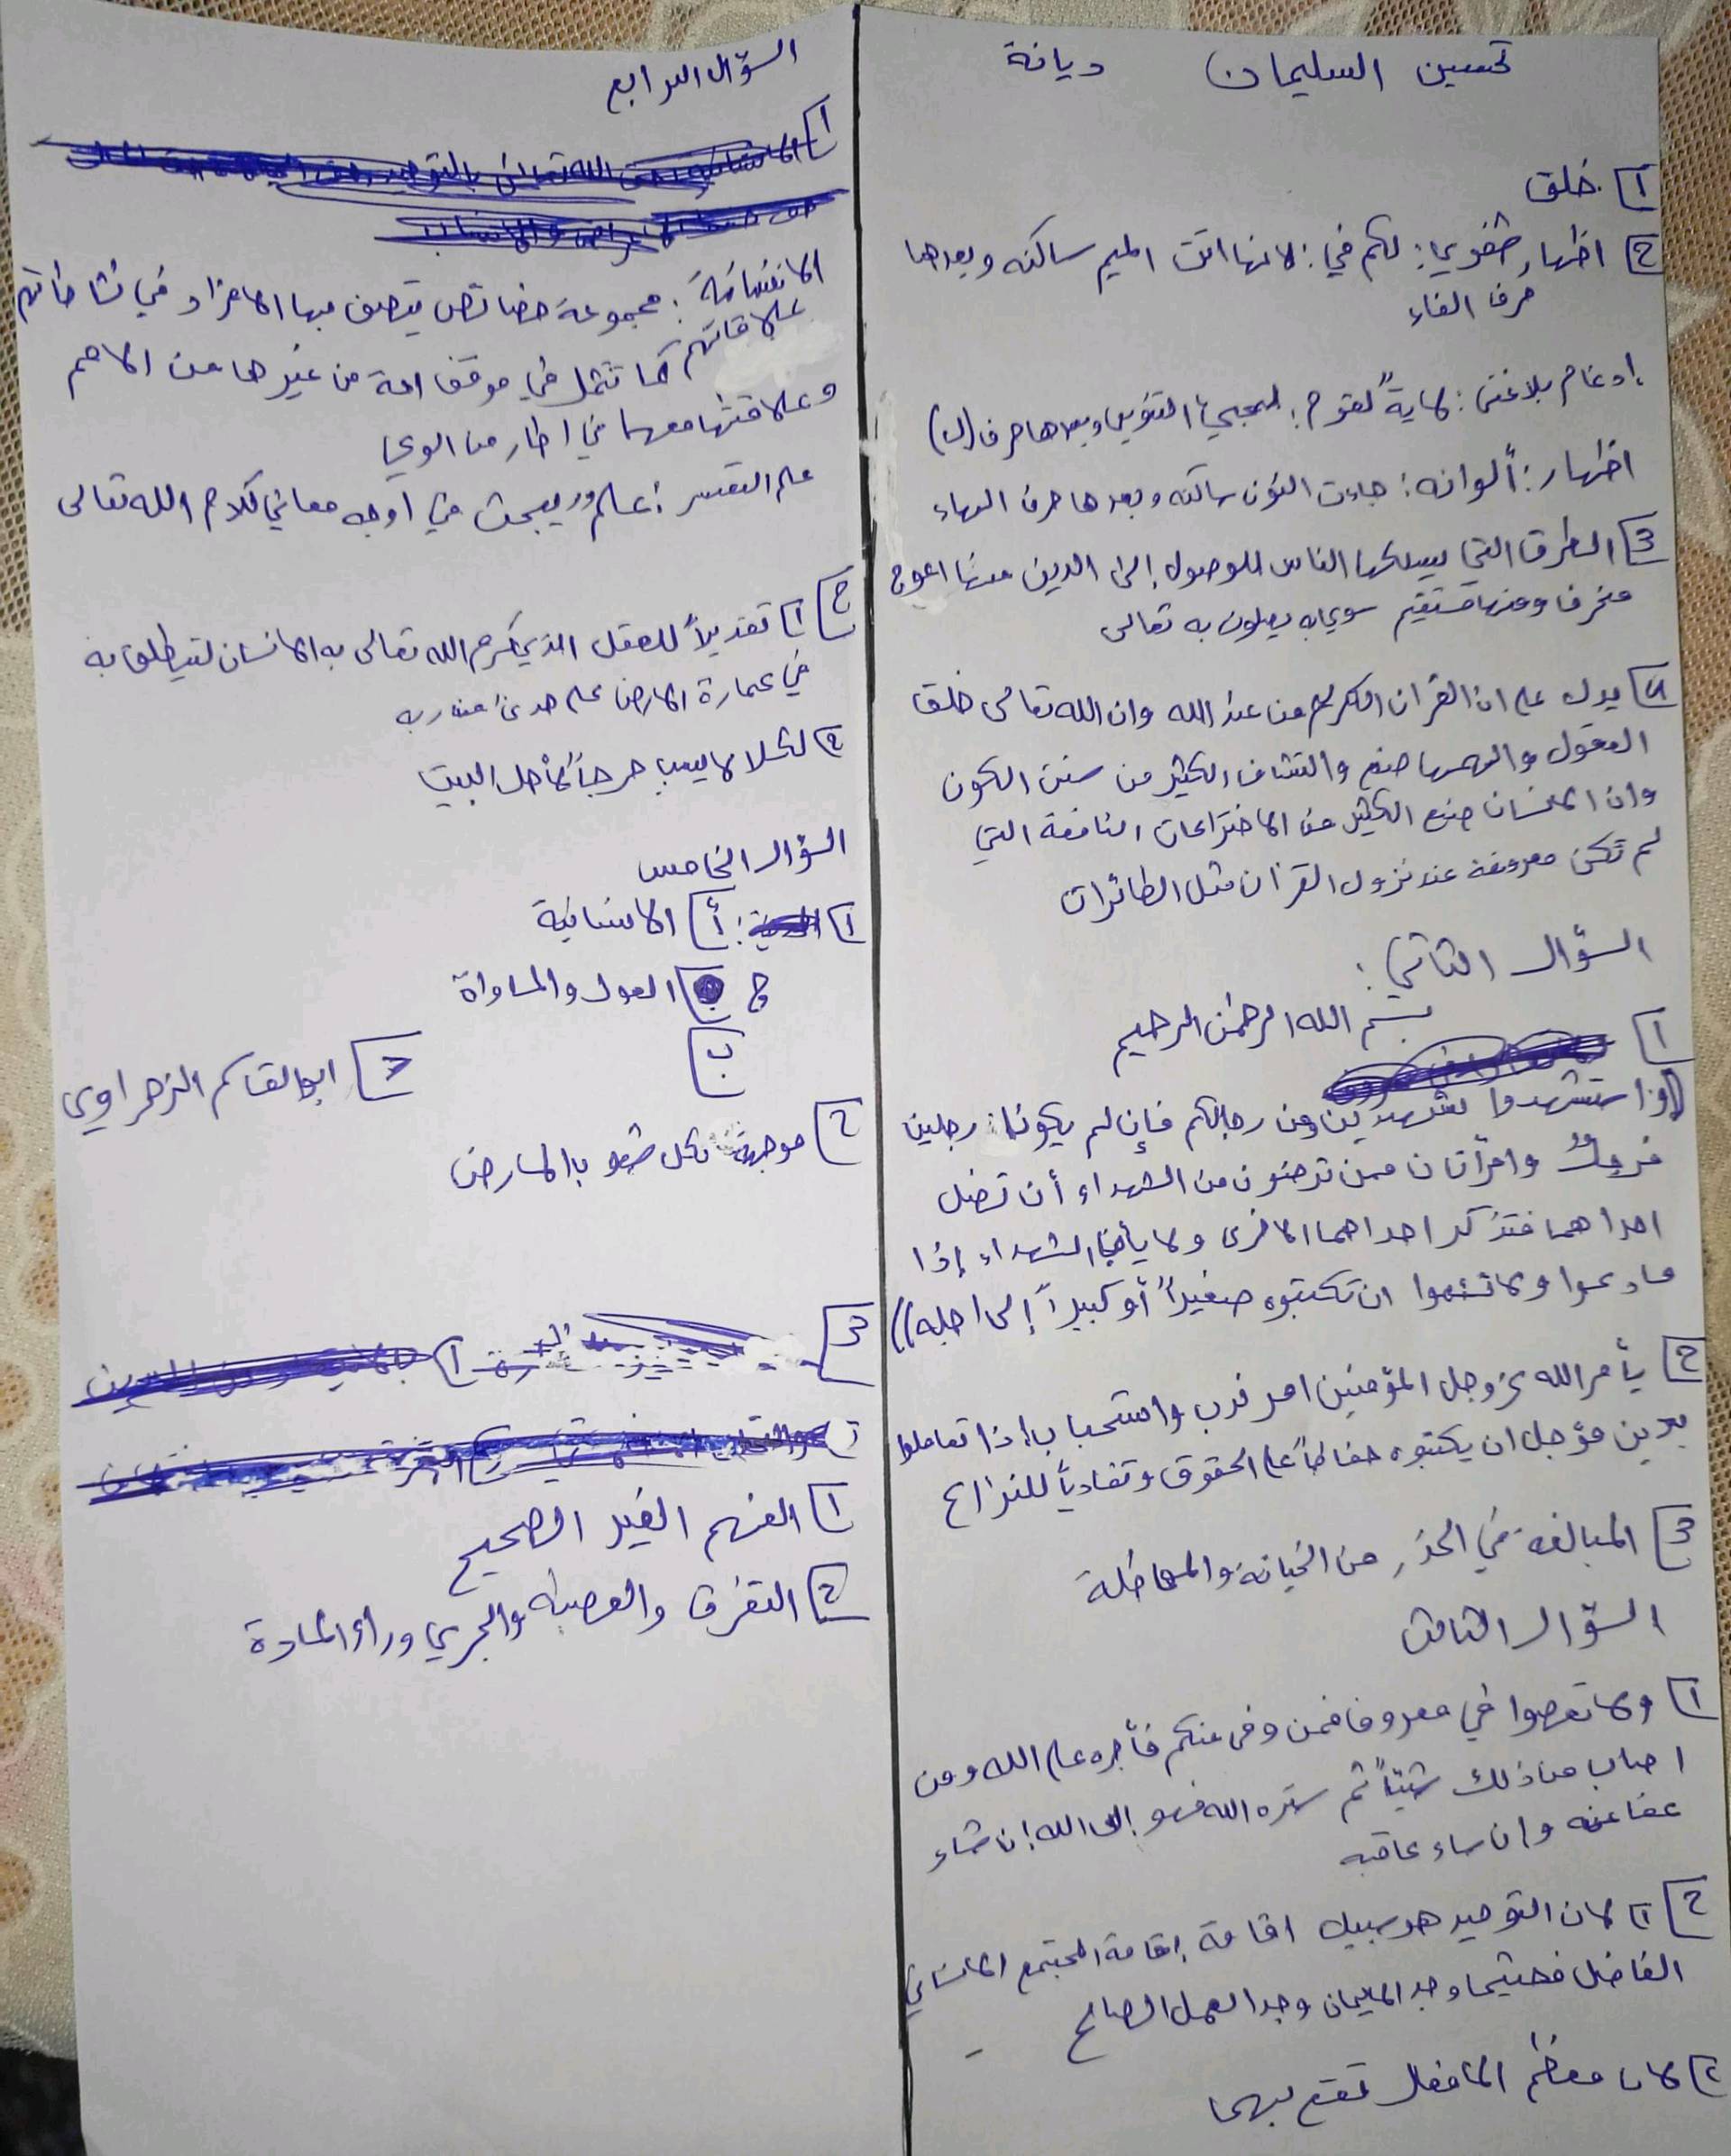 تحسين السليمان ديانة
1 خلق
2 اظهار شفوي: لكم في: لانها اتت الميم ساكنه وبعدها
حرف الفاء
إدغام بلا غنى: لايةً لقوم: لمجيئ التنوين وبعدها حرف (ل)
اظهار: ألوانه: جاءت النون ساكنه وبعدها حرف الهاء
3 الطرق التي يسلكها الناس للوصول إلى الدين منها اعوج
منحرف ومنها مستقيم سوي يصلون به تعالى
4 يدل على ان القران الكريم من عند الله وان الله تعالى خلق
العقول والهمها صنع واكتشاف الكثير من سنن الكون
وان الانسان صنع الكثير من الاختراعات النافعة التي
لم تكن معروفة عند نزول القرآن مثل الطائرات
السؤال الثاني:
1 بسم الله الرحمن الرحيم
((واستشهدوا شهيدين من رجالكم فإن لم يكونا رجلين
فرجل وامرأتان ممن ترضون من الشهداء أن تضل
احداهما فتذكر احداهما الاخرى ولا يأب الشهداء إذا
مادعوا ولا تسئموا ان تكتبوه صغيراً أو كبيراً إلى اجله))
2 يأمر الله عزوجل المؤمنين امر ندب واستحباب إذا تعاملوا
بدين مؤجل ان يكتبوه حفاظاً على الحقوق وتفادياً للنزاع
3 المبالغة في الحذر من الخيانة والمماطلة
السؤال الثالث
1 ولا تعصوا في معروف فمن وفى منكم فأجره على الله ومن
اصاب من ذلك شيئاً ثم ستره الله فهو إلى الله إن شاء
عفا عنه وإن شاء عاقبه
2 1 لان التوحيد هو سبيل اقامة إقامة المجتمع الانساني
الفاضل فحيثما وجد الايمان وجد العمل الصالح
2 لان معظم الافعال تقع بهما
السؤال الرابع
1
الانسانية: مجموعة خصائص يتصف بها الافراد في نشاطاتهم
علاقاتهم كما تتمثل في موقف امة من غيرها من الامم
وعلاقتها معها في اطار من الوعي
علم التفسير: علم يبحث في اوجه معاني كلام الله تعالى
2 1 تقديراً للعقل الذي كرم الله تعالى به الانسان لينطلق به
في عمارة الارض على هدىً من ربه
2 لكلا لايسبب حرجاً لأهل البيت
السؤال الخامس
1 أ الانسانية
ج العدل والمساواة
ب د ابو القاسم الزهراوي
2 موجهة لكل شعوب الارض
3
1 الفهم الغير الصحيح
2 التفرق والعصبية والجري وراء المادة